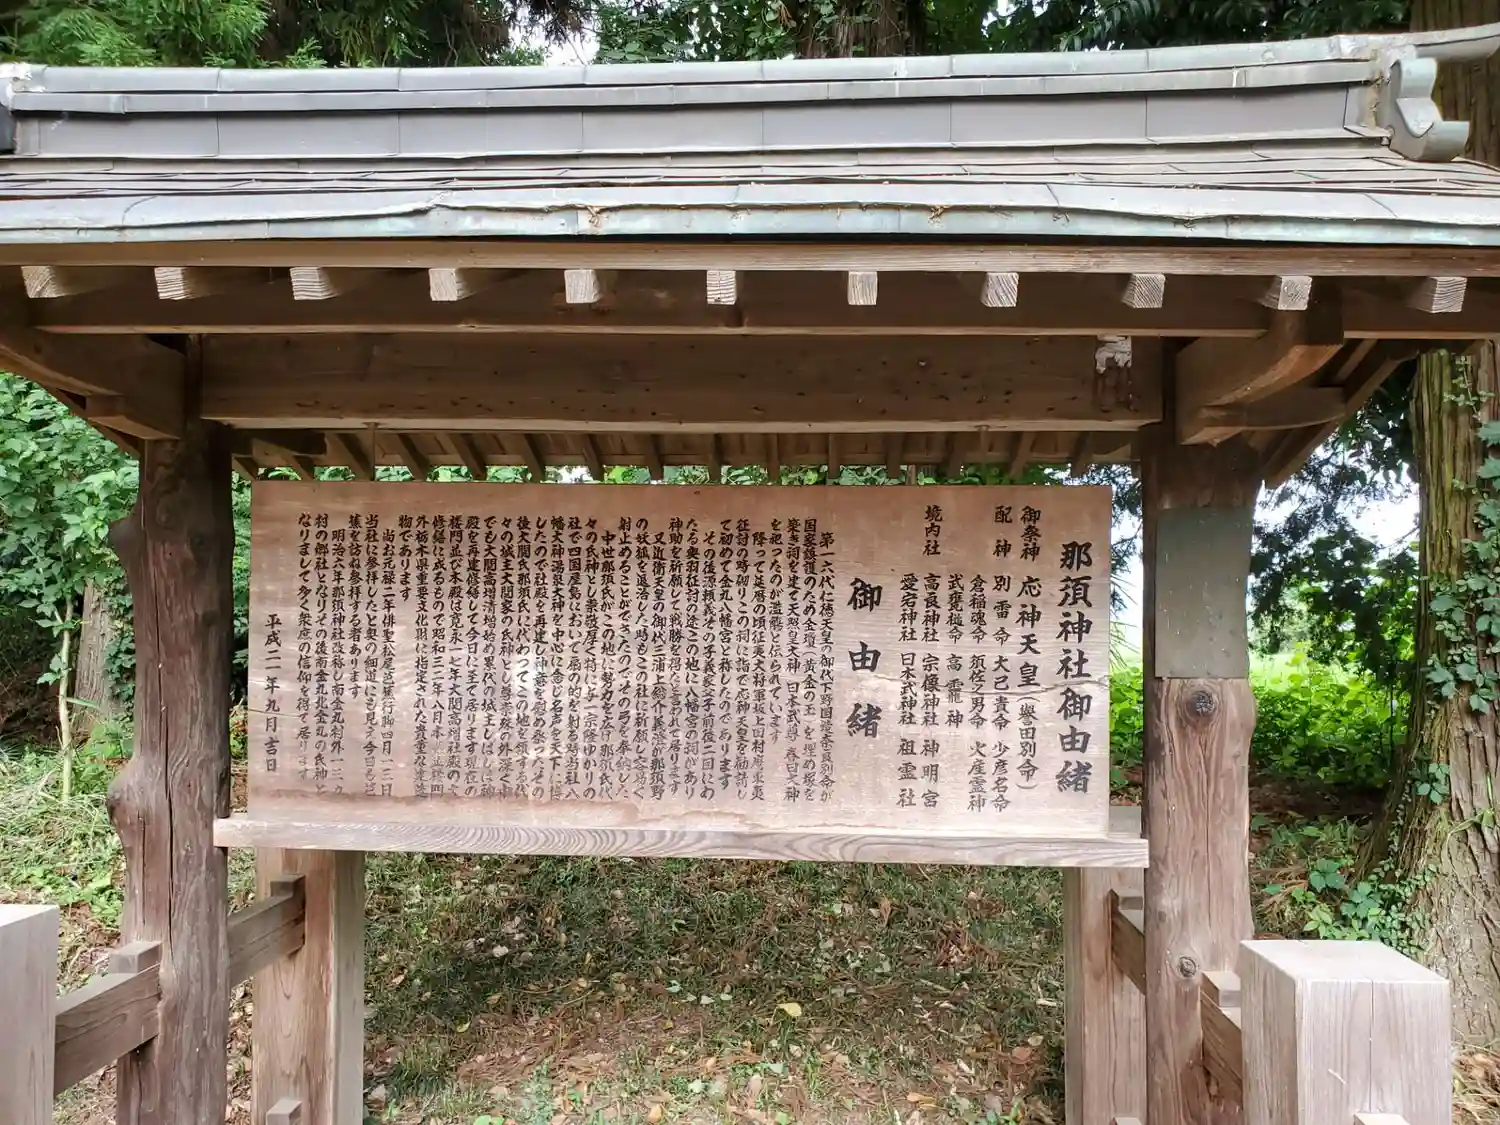 那須神社御由緒
御祭神 応神天皇（誉田別命）
配神 別雷命 大己貴命 少彦名命
倉稲魂命 須佐之男命 火産霊神
武甕槌命 高龗神
境内社 高良神社 宗像神社 神明宮
愛宕神社 日本武神社 祖霊社
御由緒
第一六代仁徳天皇の御代下野国造奈良別命が
国家護護のため金瓊（黄金の玉）を埋め塚を
築き祠を建て天照皇大神 日本武尊 春日大神
を祀ったのが濫觴と伝られています
降って延暦の頃征夷大将軍坂上田村麻呂東夷
征討の時砌りこの祠に詣で応神天皇を勧請し
て初めて金丸八幡宮と称したのであります
その後源頼義その子義家父子前後二回にわ
たる奥羽征討の途この地に八幡宮の祠があり
神助を祈願して戦勝を得たと言われて居ります
又近衛天皇の御代三浦上総介義澄が那須野
の妖狐を退治した時もこの社に祈願し容易く
射止めることができたのでその弓を奉納した
中世那須氏がこの地に勢力を広げ那須氏代
々の氏神とし崇敬厚く特に与一宗隆ゆかりの
社で四国屋島において扇の的を射る時当社八
幡大神湯泉大神を中心に念じ名声を天下に博
したので社殿を再建し神意を慰め奉ったその
後大関氏那須氏に代わつてこの地を領する代
々の城主大関家の氏神とし尊崇殊の外深く中
でも大関高増清増始め累代の城主しばしば神
殿を再建修修して今日に至て居ります現在の
楼門並び本殿は寛永一七年大関高増社殿の大
修繕に成るもので昭和三二年八月本殿並楼門
外栃木県重要文化財に指定された貴重な建造
物であります
尚お元禄二年俳聖松尾芭蕉行脚四月一三日
当社に参拝したと奥の細道にも見え今日も芭
蕉を訪ね参拝する者あります
明治六年那須神社改称し南金丸村外一三ヶ
村の郷社となりその後南金丸北金丸の氏神と
なりまして多く衆庶の信仰を得て居ります
平成二一年九月吉日